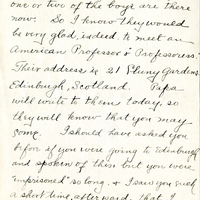 one or two of the boys are there
now. So I know they would
be very glad, indeed, to meet an
American Professor & "Professoress."
Their address is 21 Cluny Gardens
Edinburgh, Scotland. Papa
will write to them today, so
they will know that you may
come. I should have asked you
before if you were going to Edinburgh
and spoken of them but you were
"imprisoned" so long, & I saw you such
a short time afterward, that I